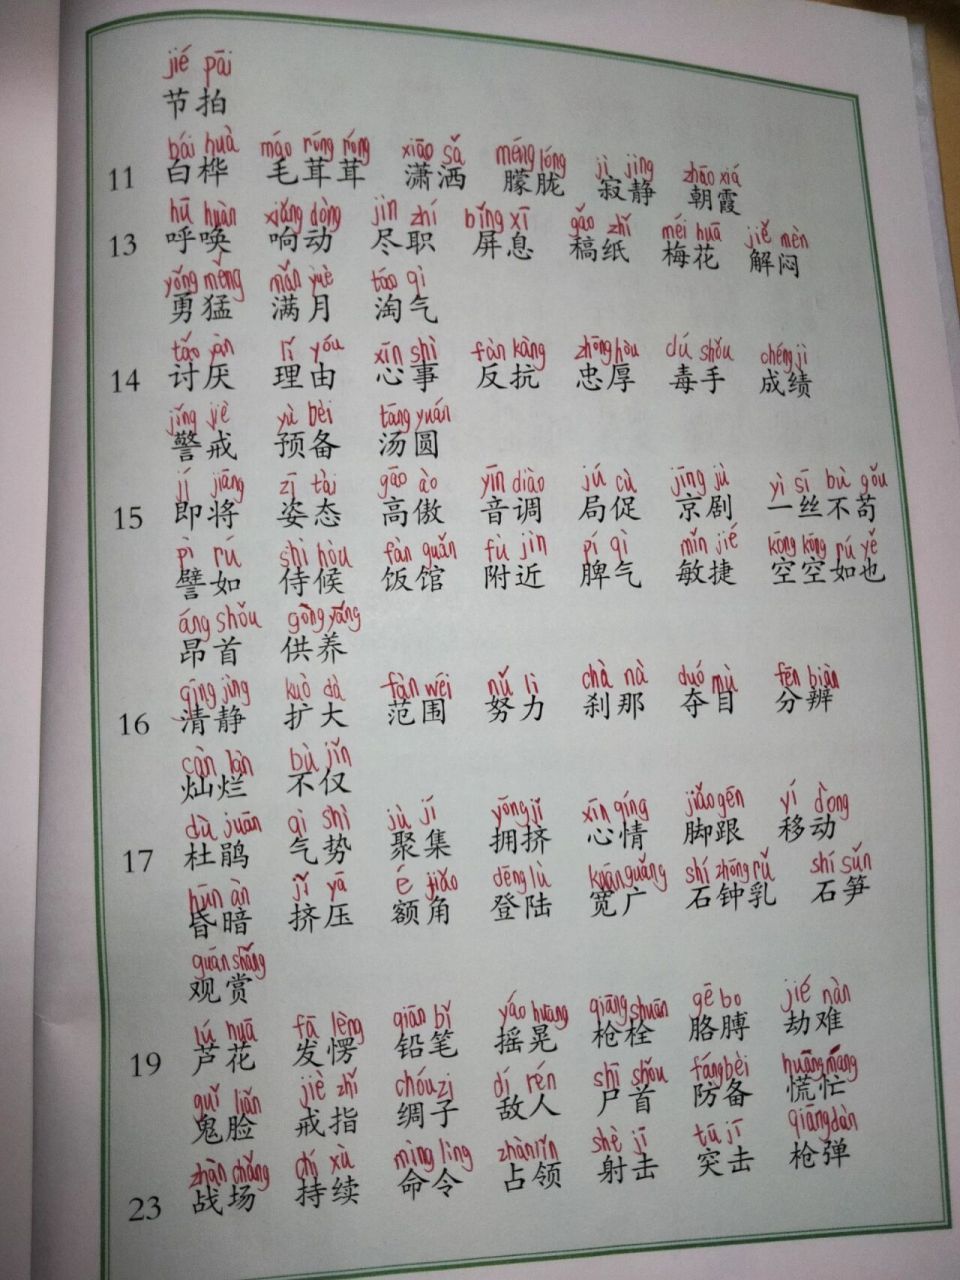 jié pāi
节拍
bái huà máo róng róng xiāo sǎ méng lóng jì jìng zhāo xiá
11 白桦 毛茸茸 潇洒 朦胧 寂静 朝霞
hū huàn xiǎng dòng jìn zhí bǐng xī gǎo zhǐ méi huā jiě mèn
13 呼唤 响动 尽职 屏息 稿纸 梅花 解闷
yǒng měng mǎn yuè táo qì
勇猛 满月 淘气
tǎo yàn lǐ yóu xīn shì fǎn kàng zhōng hòu dú shǒu chéng jì
14 讨厌 理由 心事 反抗 忠厚 毒手 成绩
jǐng jiè yù bèi tāng yuán
警戒 预备 汤圆
jí jiāng zī tài gāo ào yīn diào jú cù jīng jù yì sī bù gǒu
15 即将 姿态 高傲 音调 局促 京剧 一丝不苟
pì rú shì hòu fàn guǎn fù jìn pí qì mǐn jié kōng kōng rú yě
譬如 侍候 饭馆 附近 脾气 敏捷 空空如也
áng shǒu gòng yǎng
昂首 供养
qīng jìng kuò dà fàn wéi nǔ lì chà nà duó mù fēn biàn
16 清静 扩大 范围 努力 刹那 夺目 分辨
càn làn bù jǐn
灿烂 不仅
dù juān qì shì jù jí yōng jǐ xīn qíng jiǎo gēn yí dòng
17 杜鹃 气势 聚集 拥挤 心情 脚跟 移动
hūn àn jǐ yā é jiǎo dēng lù kuān guǎng shí zhōng rǔ shí sǔn
昏暗 挤压 额角 登陆 宽广 石钟乳 石笋
guān shǎng
观赏
lú huā fā lèng qiān bǐ yáo huàng qiāng shuān gē bo jié nàn
19 芦花 发愣 铅笔 摇晃 枪栓 胳膊 劫难
guǐ liǎn jiè zhǐ chóu zi dí rén shī shǒu fáng bèi huāng máng
鬼脸 戒指 绸子 敌人 尸首 防备 慌忙
zhàn chǎng chí xù mìng lìng zhàn lǐng shè jī tū jī qiāng dàn
23 战场 持续 命令 占领 射击 突击 枪弹